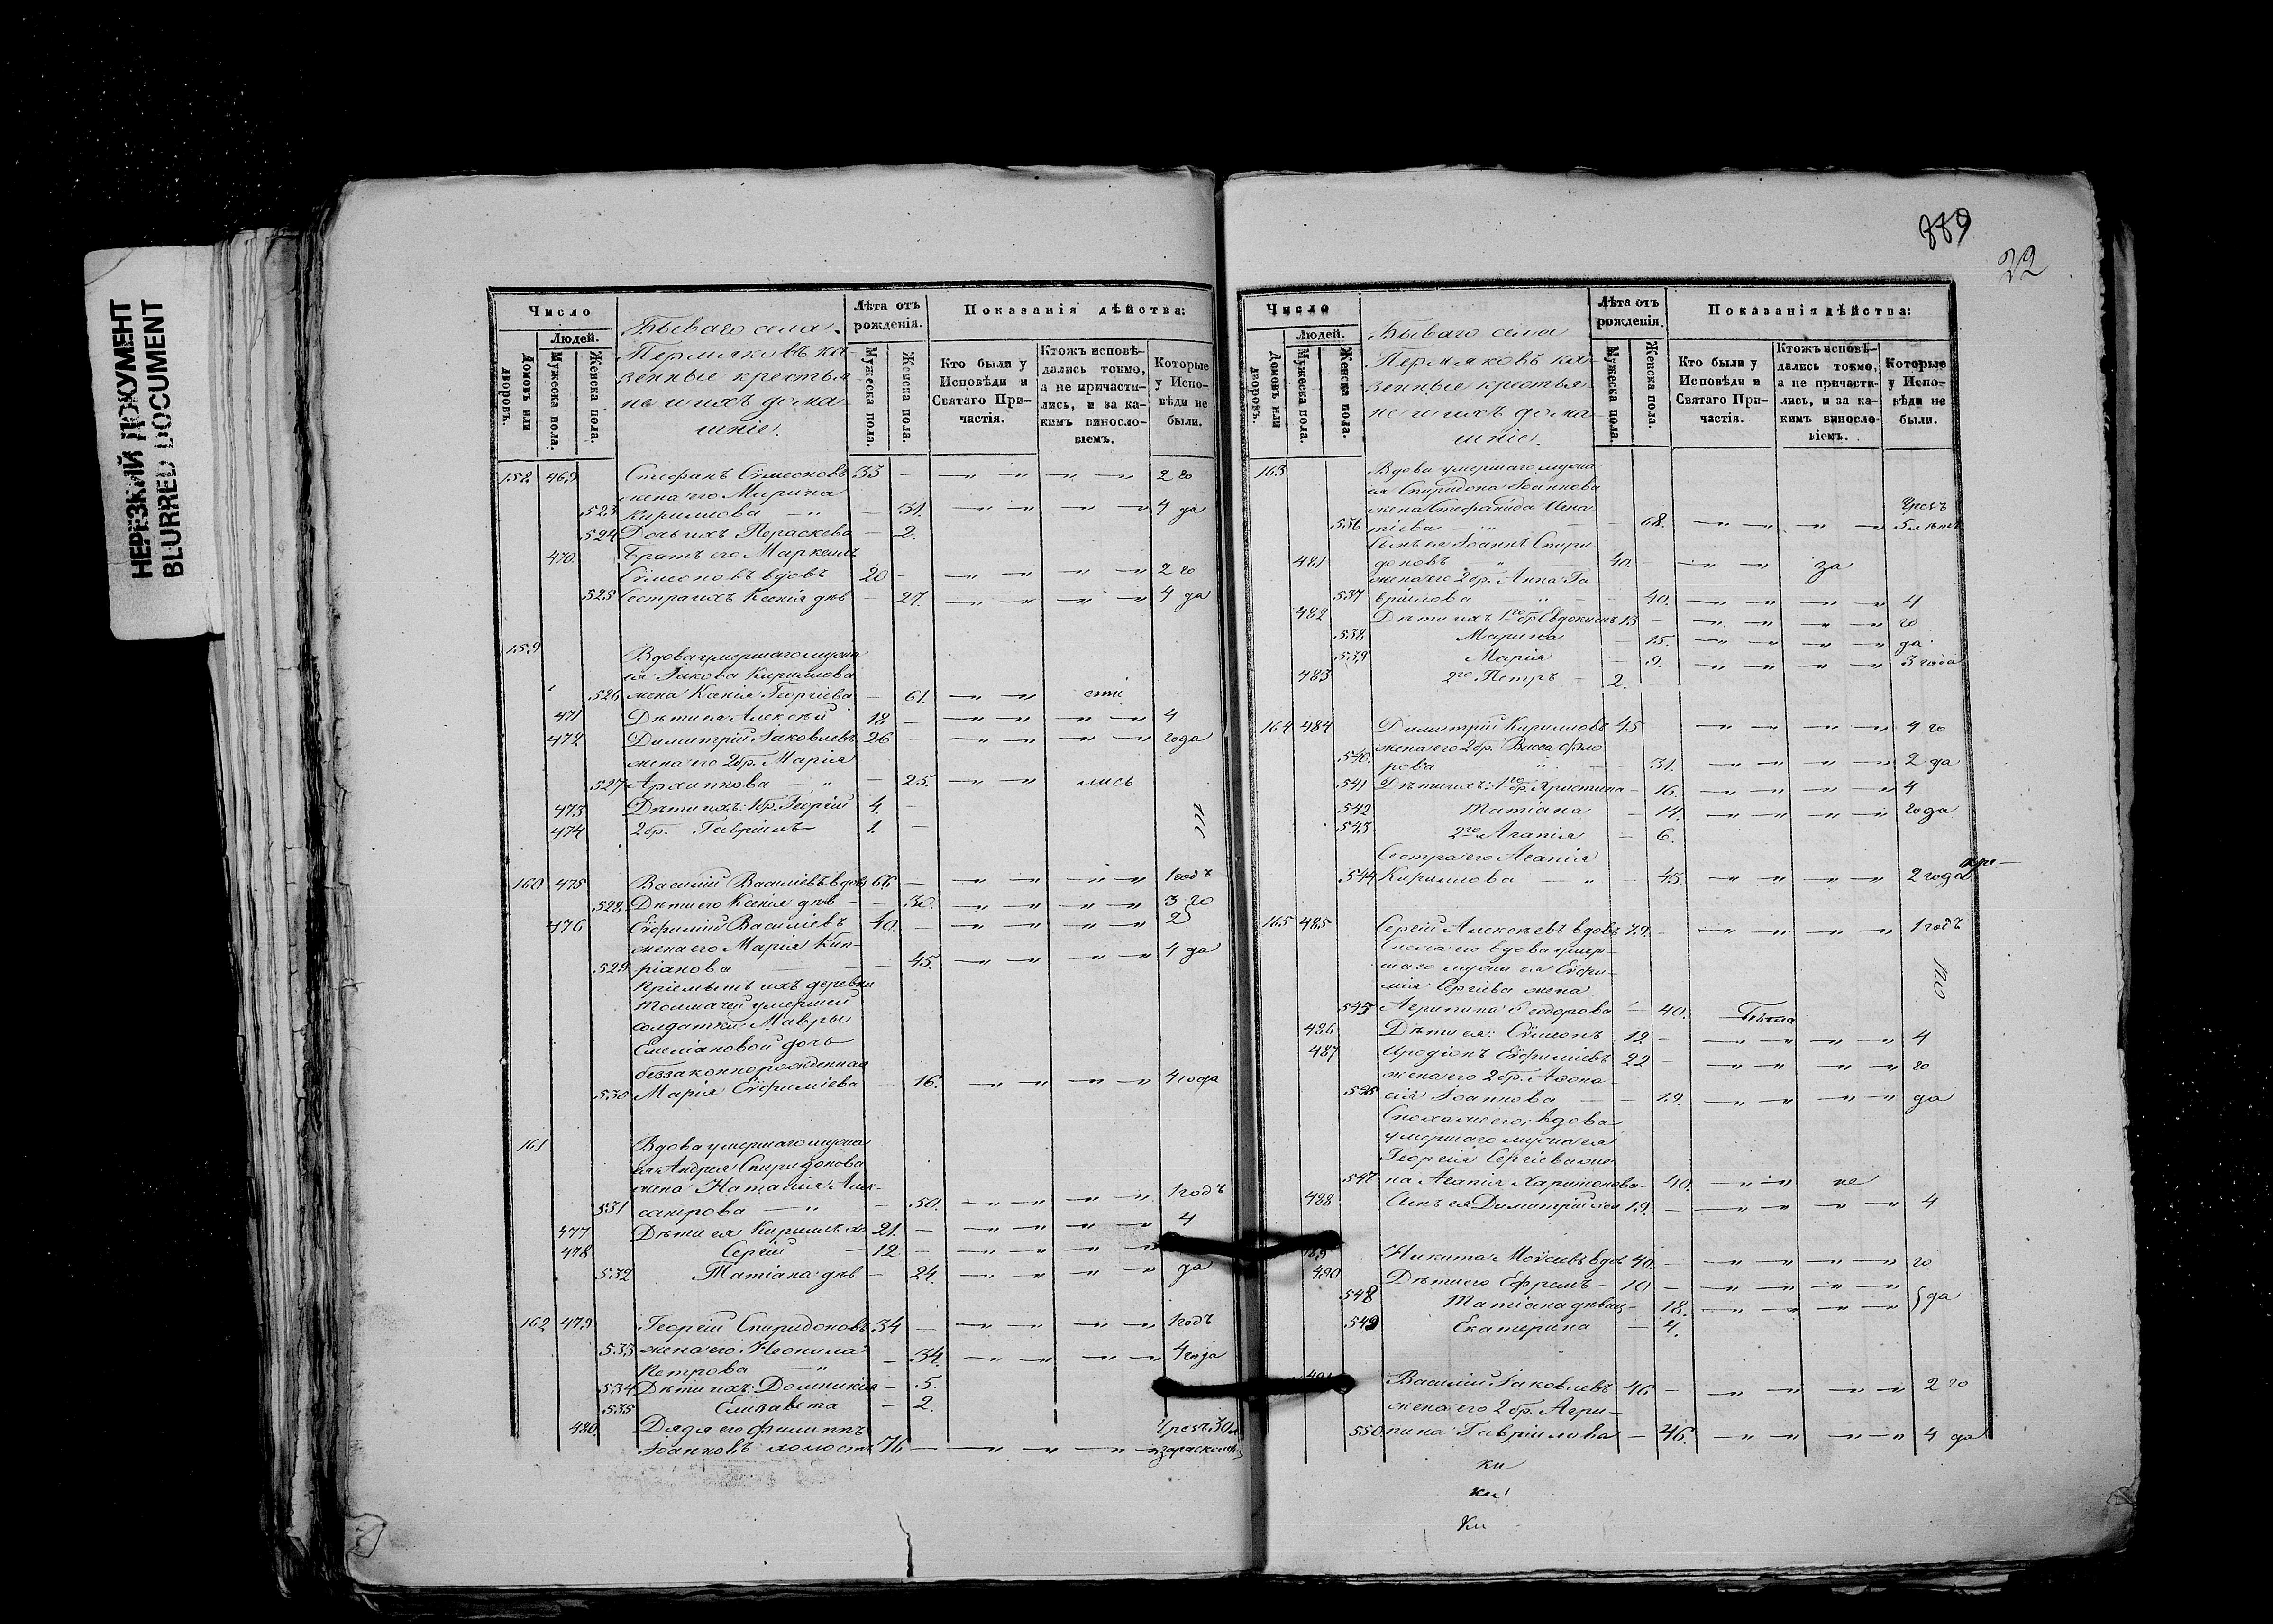 НЕРЕЗКИЙ ДОКУМЕНТ
BLURRED DOCUMENT
889
22
Число
Людей.
Домовъ или дворовъ.
Мужеска пола.
Женска пола.
Бываго села
Пермяковъ ка-
зенные крестья
не и ихъ дома-
шніе.
Лѣта отъ рожденія.
Мужеска пола.
Женска пола.
Показанія дѣйства:
Кто были у Исповѣди и Святаго Причастія.
Ктожъ исповѣ-
дались токмо,
а не причасти-
лись, и за ка-
кимъ винословіемъ.
Которые у Испо-
вѣди не были.
152 469 Стефанъ Сѷмеоновъ 33 2 го
жена его Марина
523 Кириллова 31. 4 да
524 Дочь ихъ Параскева 2.
470. Братъ его Маркеллъ
Сѷмеоновъ вдовъ 20 2 го
525 Сестра ихъ Ксенія дѣв 27. 4 да
159 Вдова умершаго мужа
ея Іакова Кириллова
526 жена Ксенія Георгіева 61.
471 Дѣти ея Алексѣй 18 4
472 Димитрій Іаковлевъ 26 года
жена его 2 бр. Марія
527 Архиппова 25. лись
473 Дѣти ихъ: 1 бр. Георгій 4.
474 2 бр. Гавріилъ 1.
160 475 Василій Васильевъ вдов 66 1 годъ
528 Дѣти его Ксенія дѣв 30. 3 го
476 Еѵфимій Васильевъ 40. 2
жена его Марія Кип-
529 ріанова 45. 4 да
Пріемышъ ихъ деревни
Толмачей умершей
солдатки Мавры
Емеліановой дочь
беззаконнорожденная
530 Марія Еѵфиміева 16. 4 года
161 Вдова умершаго мужа
ея Андрея Спиридонова
жена Наталія Алек-
531 сандрова 50. 1 годъ
477 Дѣти ея Кириллъ хо 21. 4
478 Сергій 12
532 Татіана дѣв 24. да
162 479 Георгій Спиридоновъ 34 1 годъ
533 жена его Неонила 34. 4 года
Петрова
534 Дѣти ихъ: Домникія 5.
535 Елизавета 2.
480 Дядя его Филиппъ Чрезъ 30 л
Іоанновъ холостъ 76
Число
Людей.
Домовъ или дворовъ.
Мужеска пола.
Женска пола.
Бываго села
Пермяковъ ка-
зенные крестья
не и ихъ дома-
шніе.
Лѣта отъ рожденія.
Мужеска пола.
Женска пола.
Показанія дѣйства:
Кто были у Исповѣди и Святаго Причастія.
Ктожъ исповѣ-
дались токмо,
а не причасти-
лись, и за ка-
кимъ винословіемъ.
Которые у Испо-
вѣди не были.
163 Вдова умершаго мужа
ея Спиридона Іоаннова
жена Стефанида Игна Чрезъ
536 тіева 68. 5 лѣтъ
Сынъ ея Іоаннъ Спири
481 доновъ 40. за
жена его 2 бр. Анна Га
537 вріилова 40. 4
482 Дѣти ихъ 1го бр. Евдокимъ 13 го
538 Марина 15. да
539 Марія 9. 3 года
483 2го Петръ 2.
164 484 Димитрій Кирилловъ 45 4 го
жена его 2 бр. Васса Фло
540. рова 31. 2 да
541 Дѣти ихъ: 1го бр. Христина 16. 4
542 Татіана 14. года
543 2го Агапія 6.
Сестра его Агапія
544 Кириллова 45. 2 года
165 485 Сергій Алексѣевъ вдовъ 79. 1 годъ
Сноха его вдова умер-
шаго мужа ея Еѵфи-
мія Сергіева жена
545 Агрипина Ѳеодорова 40.
486 Дѣти ея: Сѷмеонъ 12 4
487 Иродіонъ Еѵфиміевъ 22 го
жена его 2 бр. Аѳона-
546 сія Іоаннова 19. да
Сноха же его, вдова
умершаго мужа ея
Георгія Сергіева же-
547 на Агапія Харитонова 40. не
488 Сынъ ея Димитрій хол 19. 4
489 Никита Моѷсеевъ вдов 40. го
490 Дѣти его Ефремъ 10
548 Татіана дѣвиц. 18. да
549 Екатерина 4.
491 Василій Іаковлевъ 46 2 го
жена его 2 бр. Агри-
550 пина Гавріилова 46. 4 да
ки
ки
ки